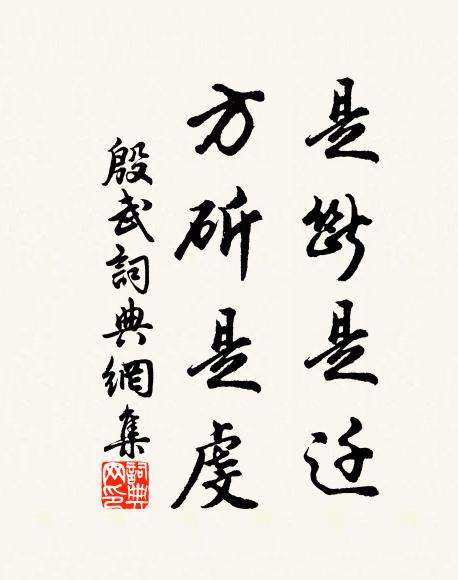 是斷是迁
方斫是虔
殷武詞典網集
詞典网印